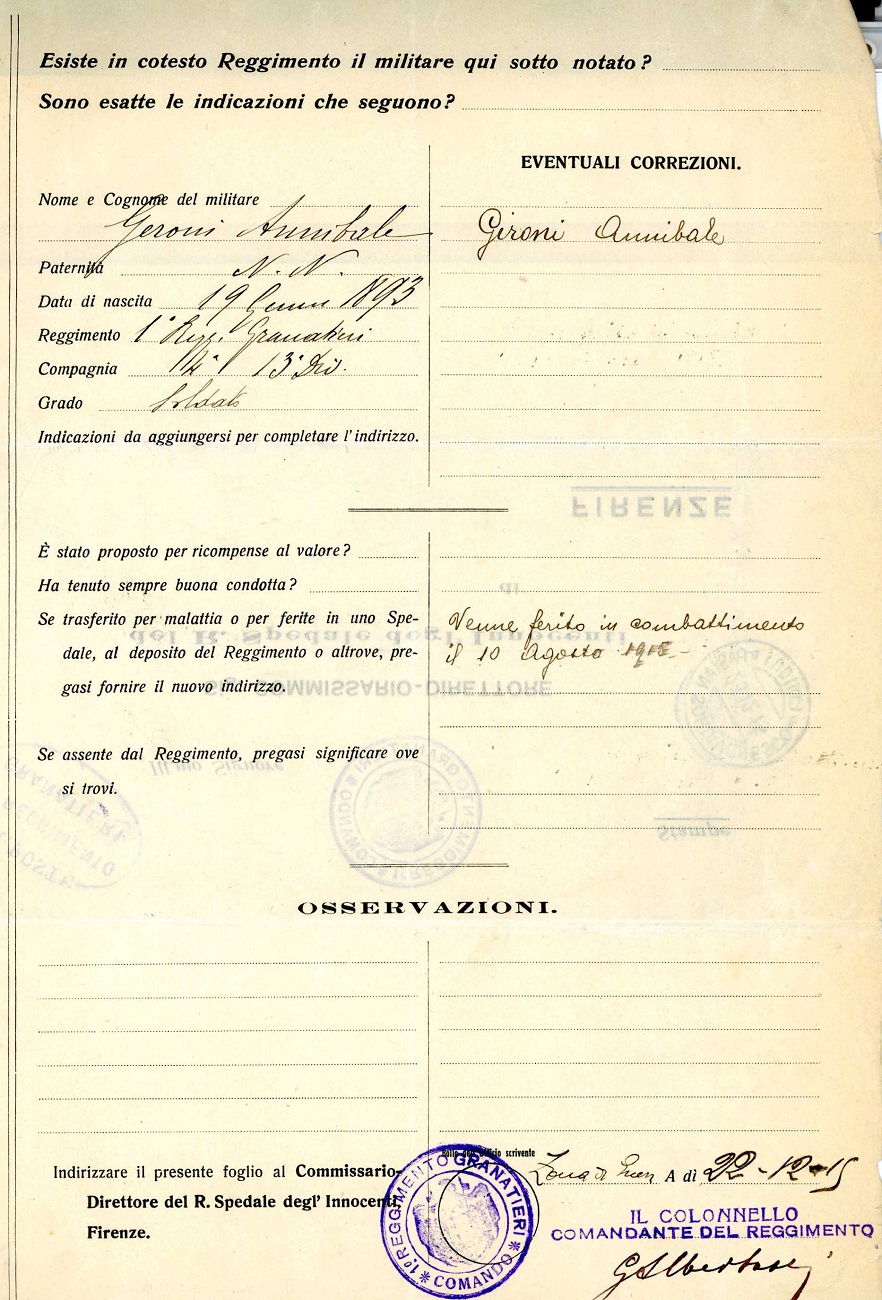 Esiste in cotesto Reggimento il militare qui sotto notato?
Sono esatte le indicazioni che seguono?
EVENTUALI CORREZIONI.
Nome e Cognome del militare
Geroni Annibale
Gironi Annibale
Paternità N. N.
Data di nascita 19 1893
Reggimento 1° Regg. Granatieri
Compagnia 13ª Div.
Grado Soldato
Indicazioni da aggiungersi per completare l'indirizzo.
FIRENZE
È stato proposto per ricompense al valore?
Ha tenuto sempre buona condotta?
di
Se trasferito per malattia o per ferite in uno Spe-
dale, al deposito del Reggimento o altrove, pre-
gasi fornire il nuovo indirizzo.
Venne ferito in combattimento
il 10 Agosto 1915 -
del R. Spedale degl' Innocenti
COMMISSARIO-DIRETTORE
Se assente dal Reggimento, pregasi significare ove
si trovi.
Stampe
OSSERVAZIONI.
Indirizzare il presente foglio al Commissario-
Direttore del R. Spedale degl' Innocenti
Firenze.
Bollo dell'Ufficio scrivente
Zona di A dì 22-12-15
1° REGGIMENTO GRANATIERI * COMANDO *
IL COLONNELLO
COMANDANTE DEL REGGIMENTO